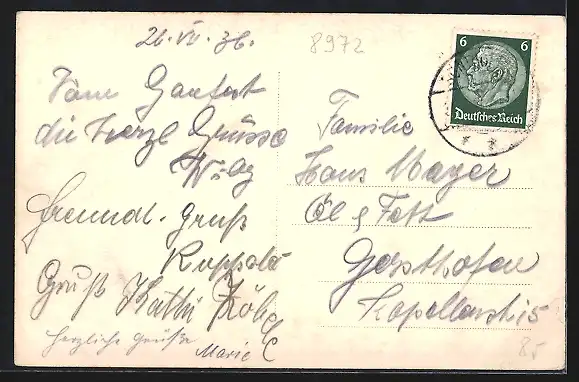 26. VII. 36.
8972
6 6
Deutsches Reich
die herzl Grüsse
Freundl. Gruß
Gruß Kathi
herzliche Grüße
Marie
Familie
Hans Mayer
Öl & Fett
Gersthofen
Kapellenstr 15
85